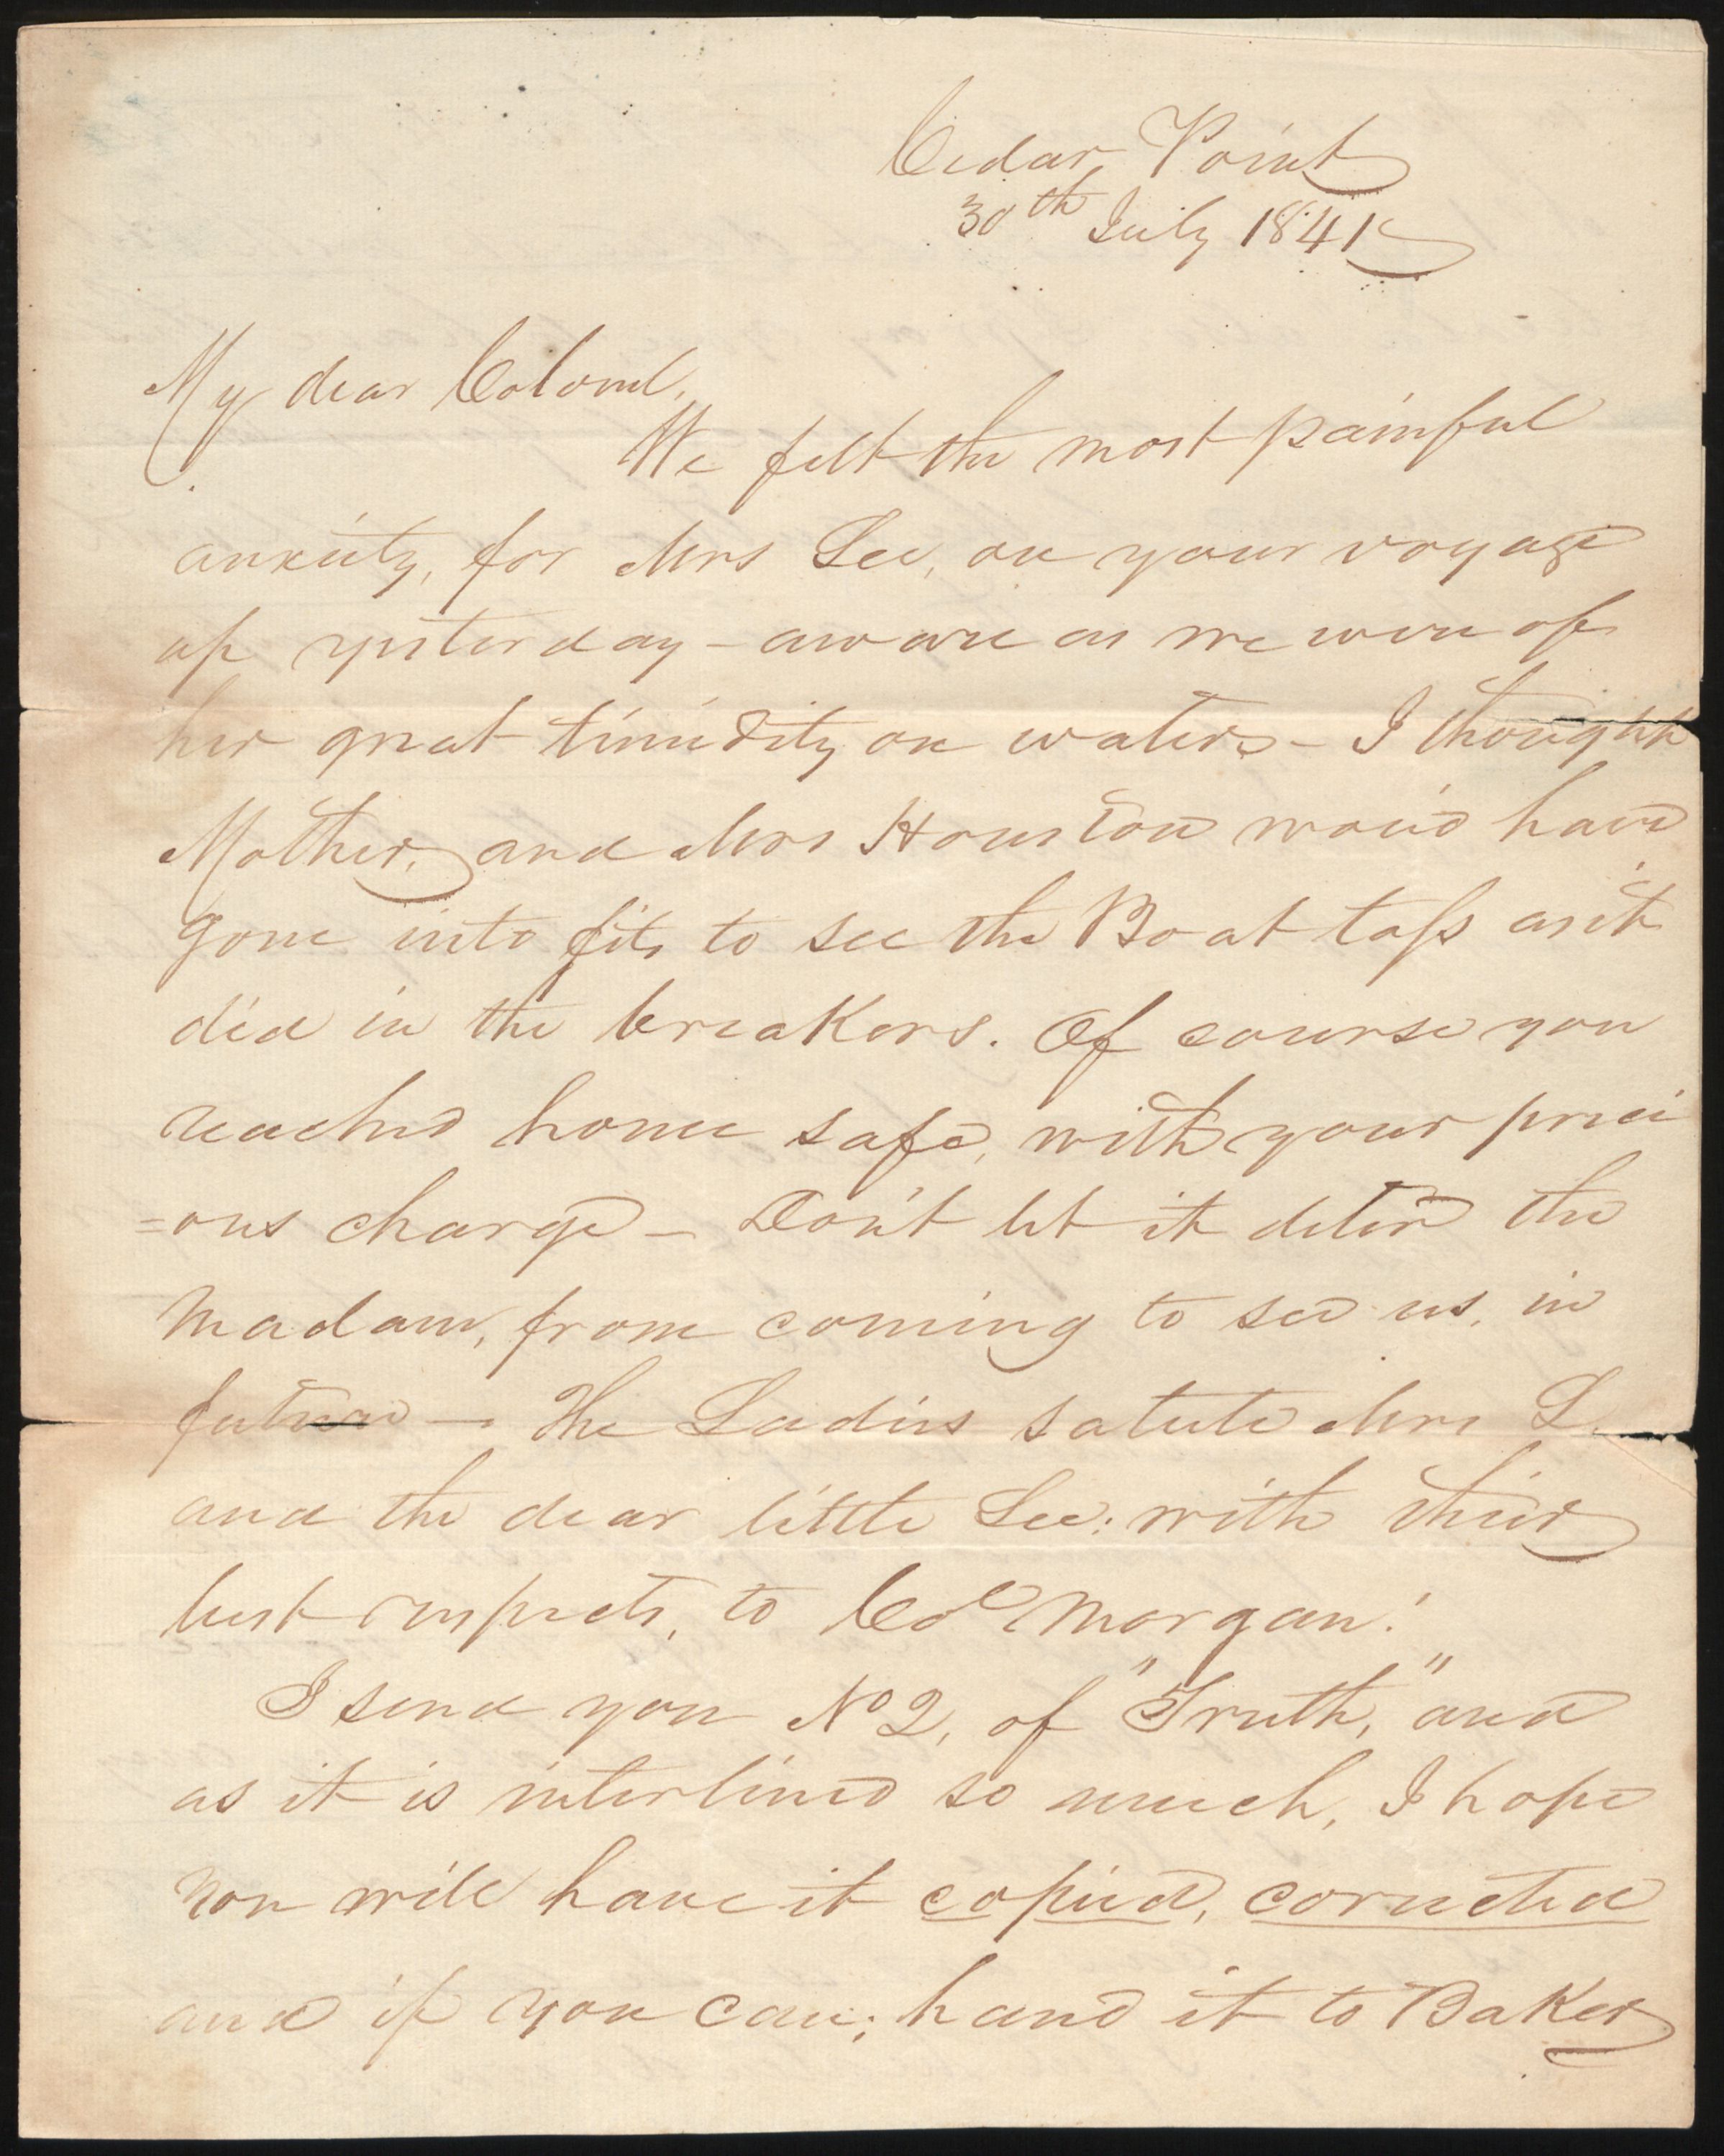 Cedar Point
30th July 1841
My dear Colonel,
We felt the most painful
anxiety, for Mrs Lee, on your voyage
up yesterday – aware as we were of
her great timidity on waters – I thought
Mother, and Mrs Houston wou'd have
gone into fits to see the Boat toss as it
did in the breakers. Of course you
reached home safe, with your preci
=ous charge – Don't let it deter the
Madam, from coming to see us, in
future – The Ladies salute Mrs L.
and the dear little Lee: with their
best respects, to Col Morgan!
I send you No 2, of "Truth," and
as it is interlined so much, I hope
you will have it copied, corrected
and if you can; hand it to Baker